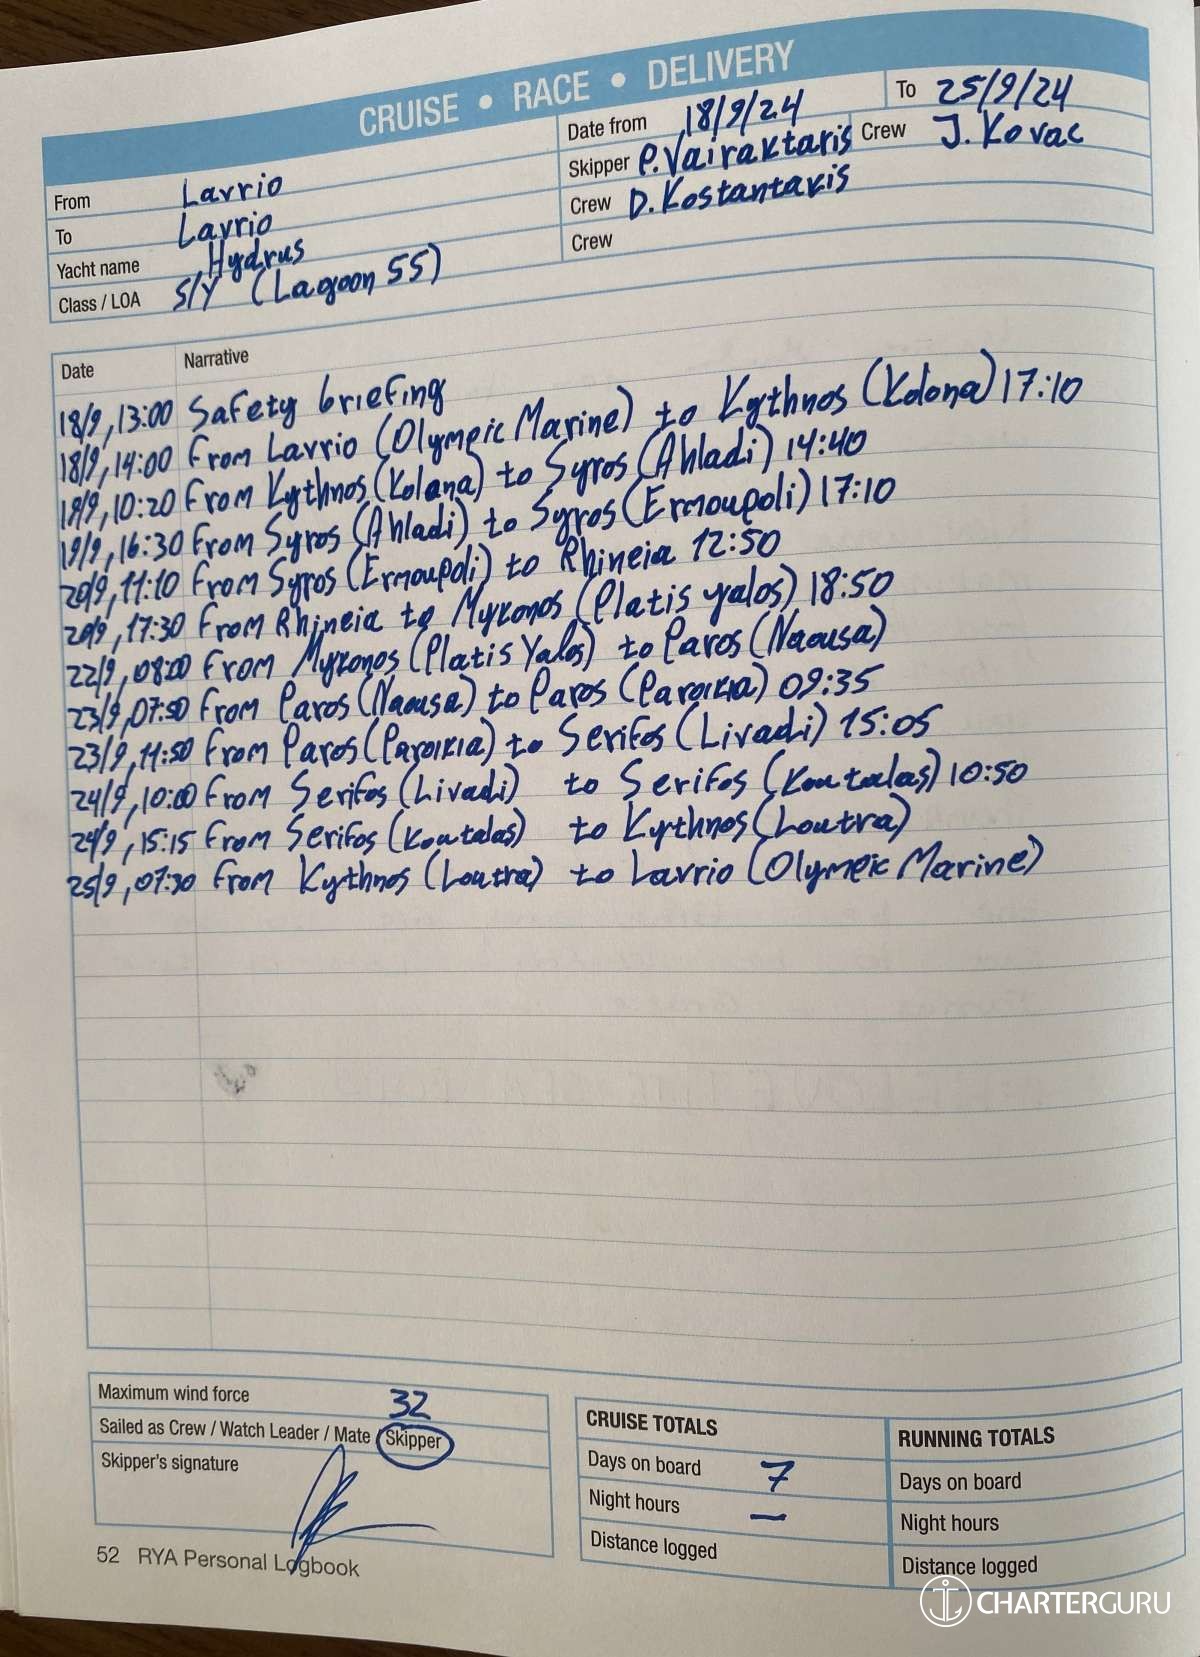 CRUISE • RACE • DELIVERY
From Lavrio
To Lavrio
Yacht name Hydrus
Class / LOA S/Y (Lagoon 55)
Date from 18/9/24 To 25/9/24
Skipper P. Vairaktaris Crew J. Kovac
Crew D. Kostantakis
Crew
Date Narrative
18/9, 13:00 Safety briefing
18/9, 14:00 From Lavrio (Olympic Marine) to Kythnos (Kolona) 17:10
19/9, 10:20 From Kythnos (Kolona) to Syros (Ahladi) 14:40
19/9, 16:30 From Syros (Ahladi) to Syros (Ermoupoli) 17:10
20/9, 11:10 From Syros (Ermoupoli) to Rhineia 12:50
20/9, 17:30 From Rhineia to Mykonos (Platis yalos) 18:50
22/9, 08:00 From Mykonos (Platis Yalos) to Paros (Naousa)
23/9, 07:50 From Paros (Naousa) to Paros (Paroikia) 09:35
23/9, 11:50 From Paros (Paroikia) to Serifos (Livadi) 15:05
24/9, 10:00 From Serifos (Livadi) to Serifos (Koutalas) 10:50
24/9, 15:15 From Serifos (Koutalas) to Kythnos (Loutra)
25/9, 07:30 From Kythnos (Loutra) to Lavrio (Olympic Marine)
Maximum wind force 32
Sailed as Crew / Watch Leader / Mate / Skipper
Skipper's signature
CRUISE TOTALS
Days on board 7
Night hours —
Distance logged
RUNNING TOTALS
Days on board
Night hours
Distance logged
52 RYA Personal Logbook
CHARTERGURU